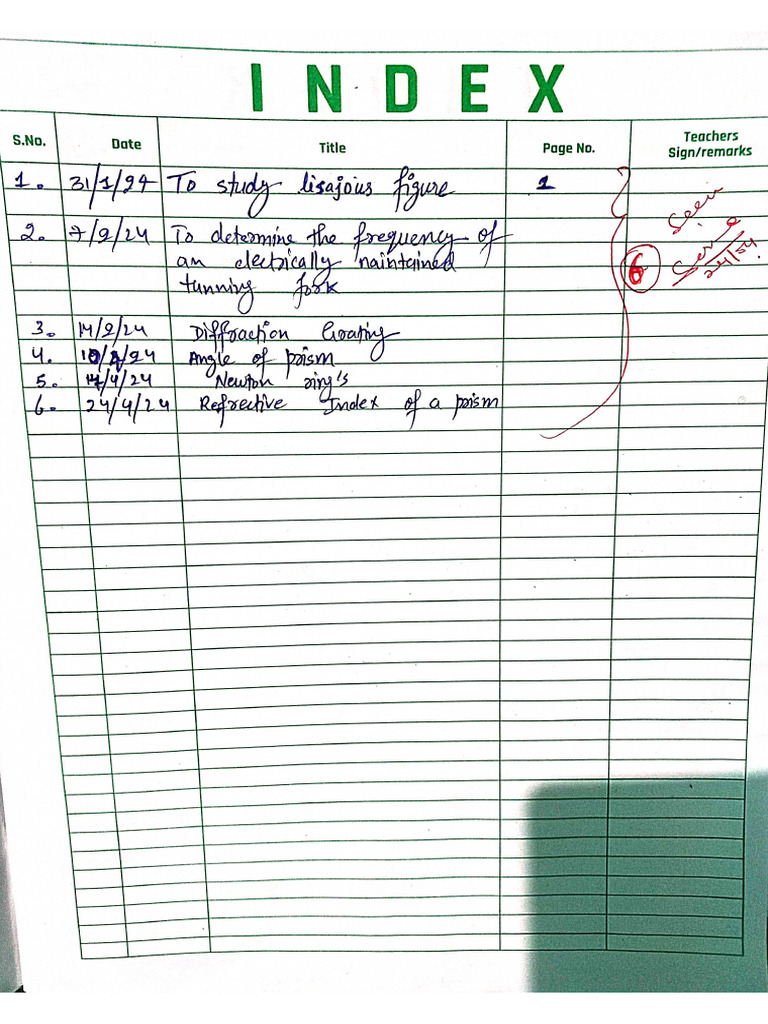 INDEX
S.No. Date Title Page No. Teachers Sign/remarks
1. 31/1/24 To study lisajous figure 1
2. 7/2/24 To determine the frequency of
an electrically maintained
tunning fork
6
Seen
24/04
3. 14/2/24 Diffraction Grating
4. Angle of prism
5. 17/4/24 Newton ring's
6. 24/4/24 Refrective Index of a prism